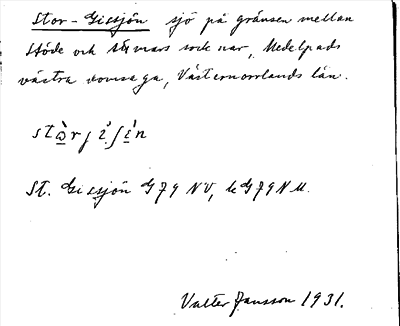 Stor-Gicsjön sjö på gränsen mellan
Stöde och socknar, Medelpads
västra domsaga, Västernorrlands län.
St. Gicsjön G79 NV, G79
Valter Jansson 1931.